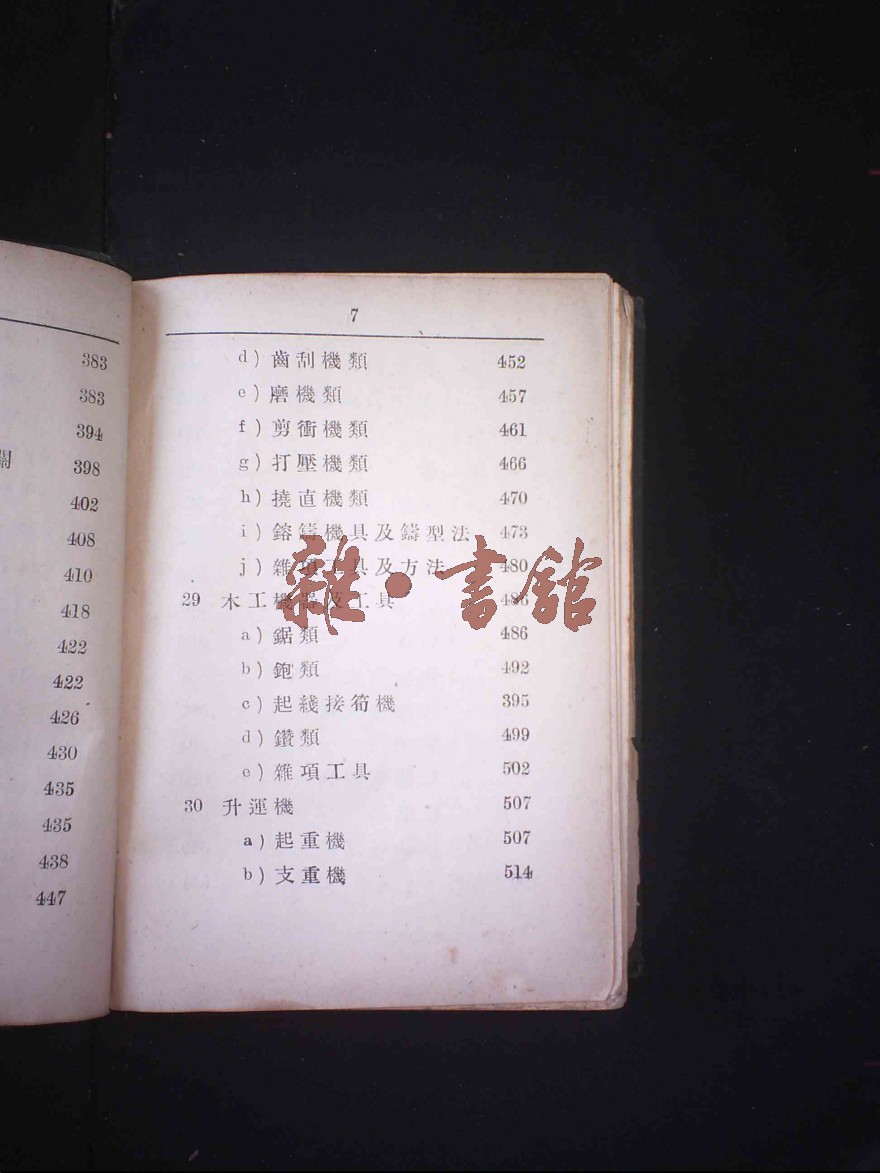 383
383
394
關
398
402
408
410
418
422
422
426
430
435
435
438
447
7
d) 齒刮機類 452
e) 磨機類 457
f) 剪衝機類 461
g) 打壓機類 466
h) 撓直機類 470
i) 鎔鑄機具及鑄型法 473
j) 雜項工具及方法 480
29 木工機器及工具 486
a) 鋸類 486
b) 鉋類 492
c) 起綫接筍機 395
d) 鑽類 499
e) 雜項工具 502
30 升運機 507
a) 起重機 507
b) 支重機 514
雜·書館